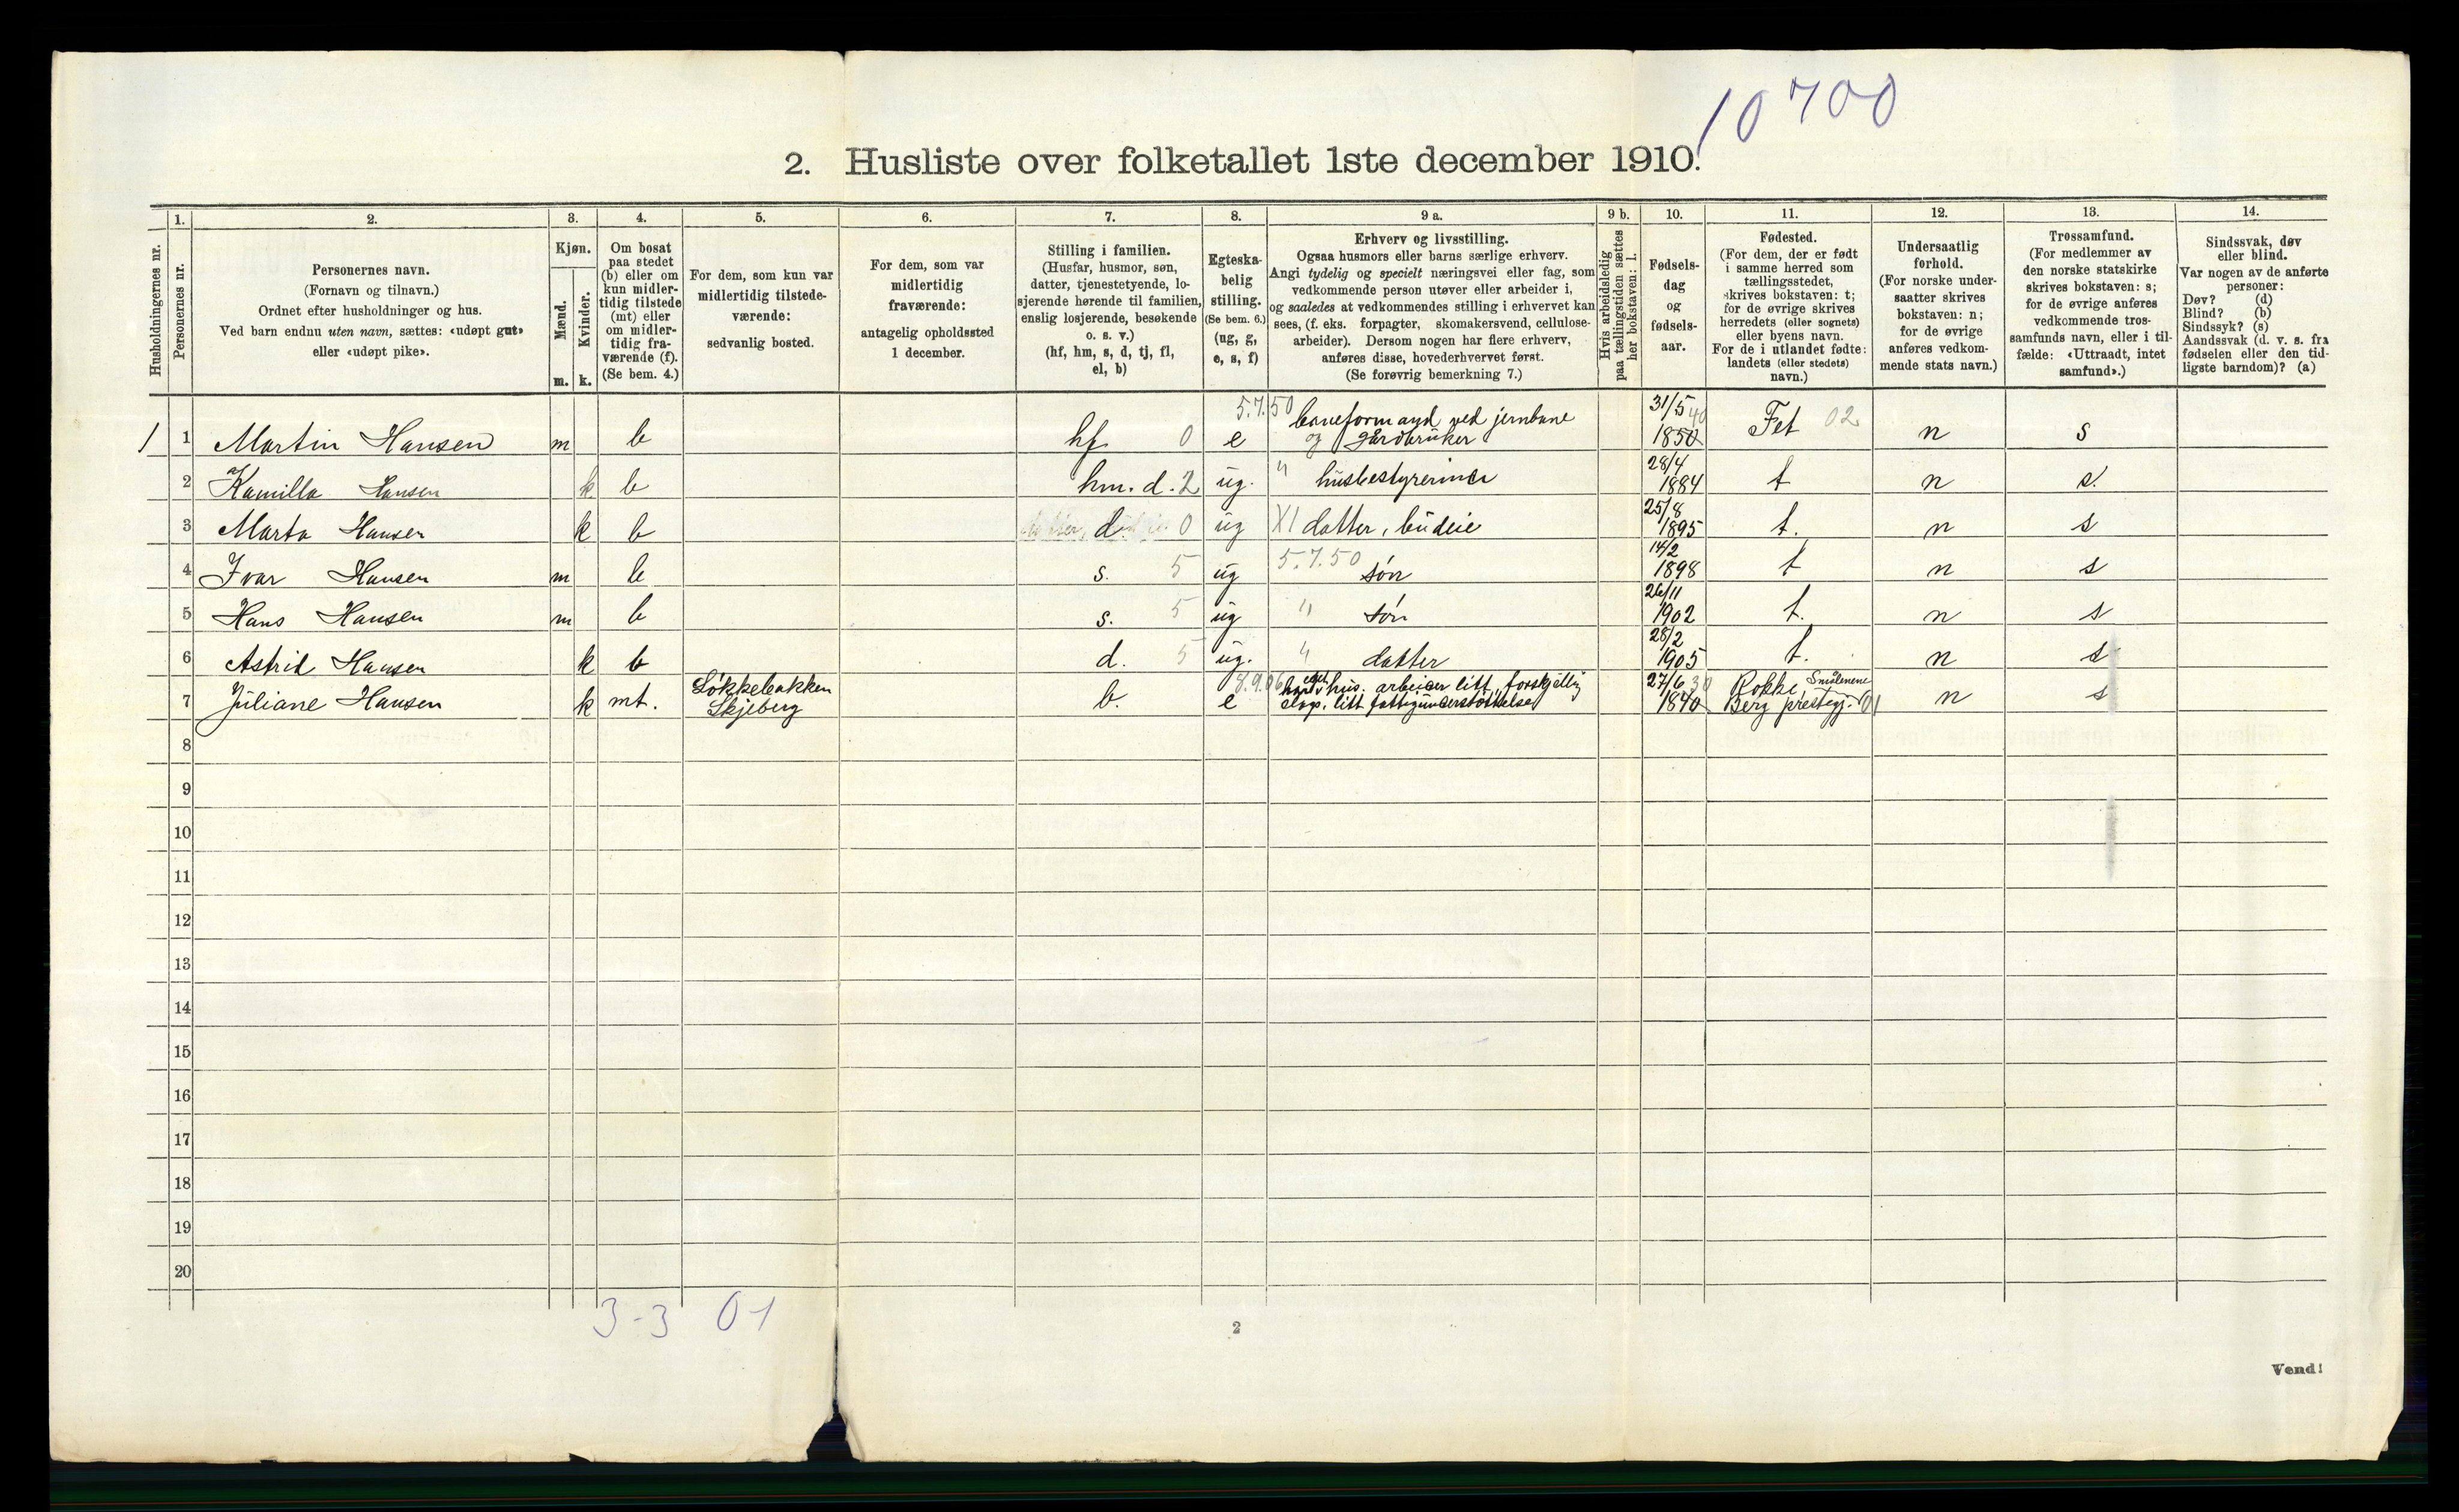 10700
2. Husliste over folketallet 1ste december 1910.
Husholdningernes nr.
1.
Personernes nr.
2.
Personernes navn.
(Fornavn og tilnavn.)
Ordnet efter husholdninger og hus.
Ved barn endnu uten navn, sættes: «udøpt gut»
eller «udøpt pike».
3.
Kjøn.
Mænd.
m.
Kvinder.
k.
4.
Om bosat
paa stedet
(b) eller om
kun midler-
tidig tilstede
(mt) eller
om midler-
tidig fra-
værende (f).
(Se bem. 4.)
5.
For dem, som kun var
midlertidig tilstede-
værende:
sedvanlig bosted.
6.
For dem, som var
midlertidig
fraværende:
antagelig opholdssted
1 december.
7.
Stilling i familien.
(Husfar, husmor, søn,
datter, tjenestetyende, lo-
sjerende hørende til familien,
enslig losjerende, besøkende
o. s. v.)
(hf, hm, s, d, tj, fl,
el, b)
8.
Egteska-
belig
stilling.
(Se bem. 6.)
(ug, g,
e, s, f)
9 a.
Erhverv og livsstilling.
Ogsaa husmors eller barns særlige erhverv.
Angi tydelig og specielt næringsvei eller fag, som
vedkommende person utøver eller arbeider i,
og saaledes at vedkommendes stilling i erhvervet kan
sees, (f. eks. forpagter, skomakersvend, cellulose-
arbeider). Dersom nogen har flere erhverv,
anføres disse, hovederhvervet først.
(Se forøvrig bemerkning 7.)
9 b.
Hvis arbeidsledig
paa tællingstiden sættes
her bokstaven: l.
10.
Fødsels-
dag
og
fødsels-
aar.
11.
Fødested.
(For dem, der er født
i samme herred som
tællingsstedet,
skrives bokstaven: t;
for de øvrige skrives
herredets (eller sognets)
eller byens navn.
For de i utlandet fødte:
landets (eller stedets)
navn.)
12.
Undersaatlig
forhold.
(For norske under-
saatter skrives
bokstaven: n;
for de øvrige
anføres vedkom-
mende stats navn.)
13.
Trossamfund.
(For medlemmer av
den norske statskirke
skrives bokstaven: s;
for de øvrige anføres
vedkommende tros-
samfunds navn, eller i til-
fælde: «Uttraadt, intet
samfund».)
14.
Sindssvak, døv
eller blind.
Var nogen av de anførte
personer:
Døv? (d)
Blind? (b)
Sindssyk? (s)
Aandssvak (d. v. s. fra
fødselen eller den tid-
ligste barndom)? (a)
5.7.50 baneformand ved jernbane 31/5 40
1 1 Martin Hansen m b hf 0 e og gårdbruker 1850 Fet 02 n s
28/4
2 Kamilla Hansen k b hm. d. 2 ug. " husbestyrerinde 1884 t n s.
25/8
3 Marta Hansen k b d. 0 ug XI datter, budeie 1895 t. n s
14/2
4 Ivar Hansen m b s. 5 ug 5.7.50 søn 1898 t n s
26/11
5 Hans Hansen m b s. 5 ug " søn 1902 t. n s
28/2
6 Astrid Hansen k b d. 5 ug. " datter 1905 t. n s
Løkkebakken 8.9.06 har eget hus. arbeider litt, forskjellig 27/6 30 Rokke, Smålenene
7 Juliane Hansen k mt. Skjeberg b. e litt fattigunderstøttelse 1840 Berg prestegj. 01 n s
8
9
10
11
12
13
14
15
16
17
18
19
20
3-3 0-1
2
Vend!